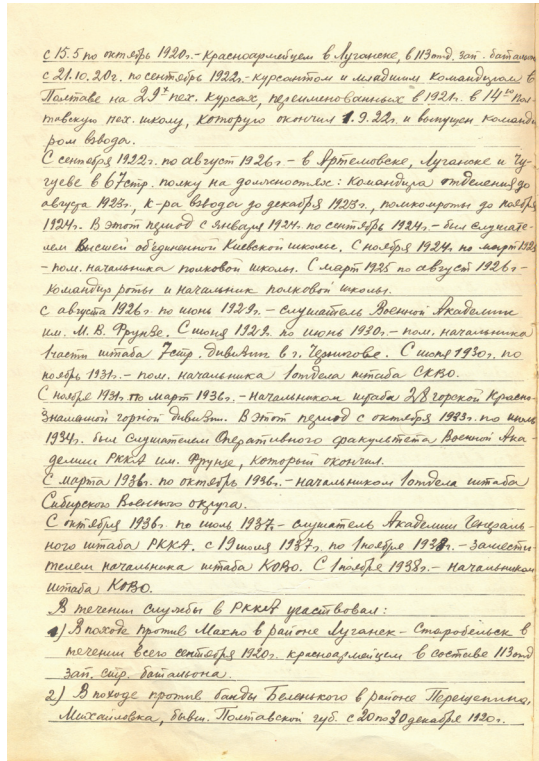 с 15.5 по октябрь 1920г.- Красноармейцем в Луганске, в 113 отд. зап. батальон
с 21.10.20г. по сентябрь 1922г.- курсантом и младшим командиром в
Полтаве на 29х пех. курсах, переименованных в 1921г. в 14ую Пол-
тавскую пех. школу, которую окончил 1.9.22г. и выпущен команди-
ром взвода.
С сентября 1922г. по август 1926г.- в Артемовске, Луганске и Чу-
гуеве в 67 стр. полку на должностях: командира отделения до
августа 1923г., к-ра взвода до декабря 1923г., помкомроты до ноября
1924г. В этот период с января 1924г. по сентябрь 1924г.- был слушате-
лем Высшей объединенной Киевской школы. С ноября 1924г. по март 1925
- пом. начальника полковой школы. С март 1925 по август 1926г.-
командир роты и начальник полковой школы.
с августа 1926г. по июнь 1929г.- слушатель Военной Академии
им. М. В. Фрунзе. С июня 1929г. по июнь 1930г.- пом. начальника
1 части штаба 7 стр. дивизии в г. Чернигове. С июня 1930г. по
ноябрь 1931г.- пом. начальника 1 отдела штаба СКВО.
С ноября 1931 по март 1936г.- начальником штаба 28 горской Красно-
знаменной горной дивизии. В этот период с октября 1933г. по июль
1934г. был слушателем Оперативного факультета Военной Ака-
демии РККА им. Фрунзе, который окончил.
С марта 1936г. по октябрь 1936г.- начальником 1 отдела штаба
Сибирского Военного округа.
С октября 1936г. по июль 1937- слушатель Академии Генераль-
ного штаба РККА. с 19 июля 1937г. по 1 ноября 1938г.- замести-
телем начальника штаба КОВО. С 1 ноября 1938г.- начальником
штаба КОВО.
В течении службы в РККА участвовал:
1) В походе против Махно в районе Луганск - Старобельск в
течении всего сентября 1920г. красноармейцем в составе 113 отд
зап. стр. батальона.
2) В походе против банды Беленького в районе Перещепино,
Михайловка, бывш. Полтавской губ. с 20 по 30 декабря 1920г.